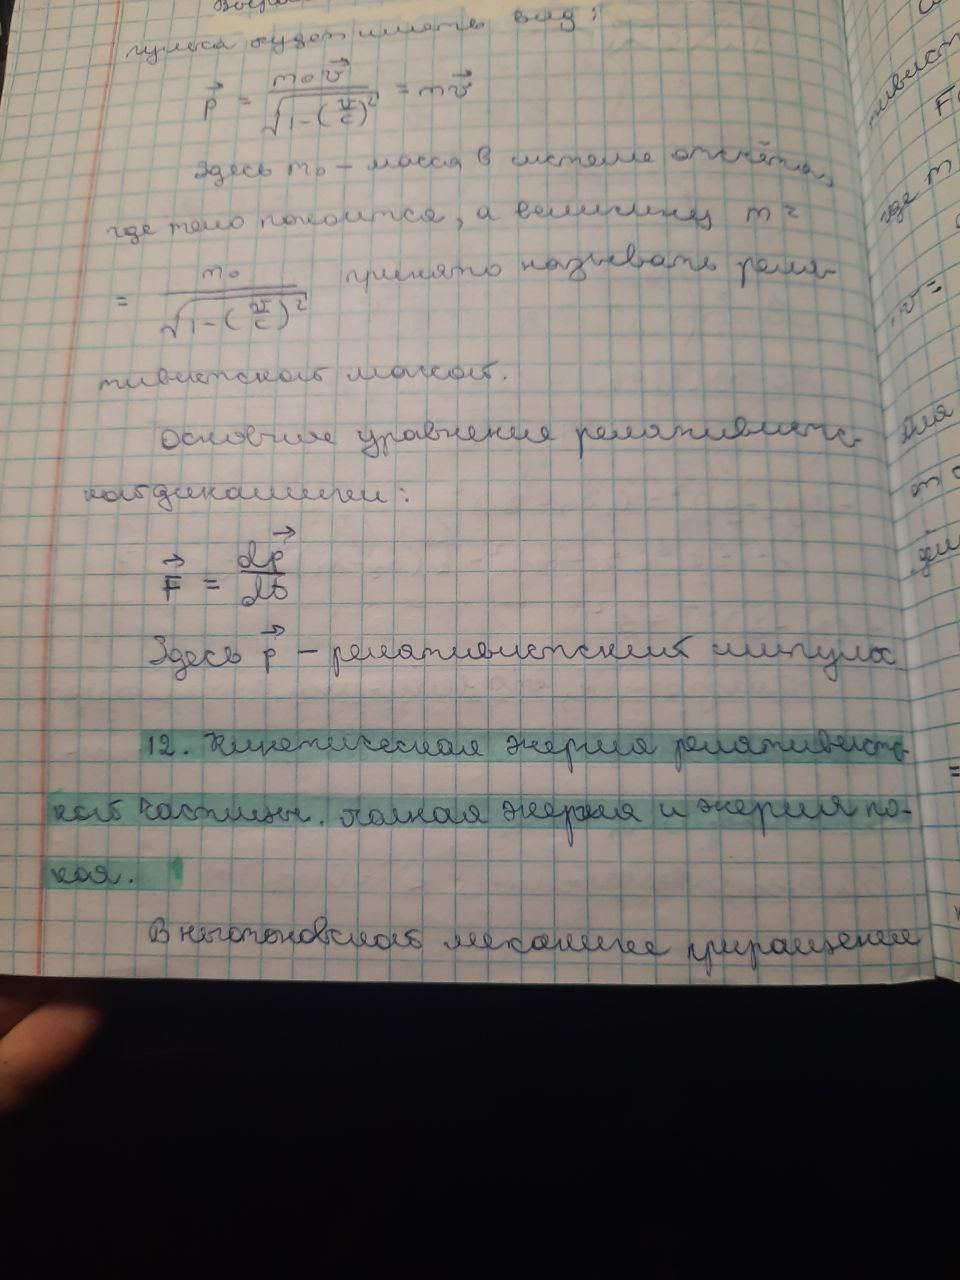 пульса будет иметь вид:
p⃗ = m₀v⃗ / √(1-(v/c)²) = mv⃗
Здесь m₀ – масса в системе отсчёта,
где тело покоится, а величину m =
= m₀ / √(1-(v/c)²) принято называть реля-
тивистской массой.
Основные уравнения релятивистс-
кой динамики:
F⃗ = dp⃗/dt
Здесь p⃗ – релятивистский импульс
12. Кинетическая энергия релятивистс-
кой частицы. Полная энергия и энергия по-
коя.
В ньютоновской механике приращение
тивист
где m
для